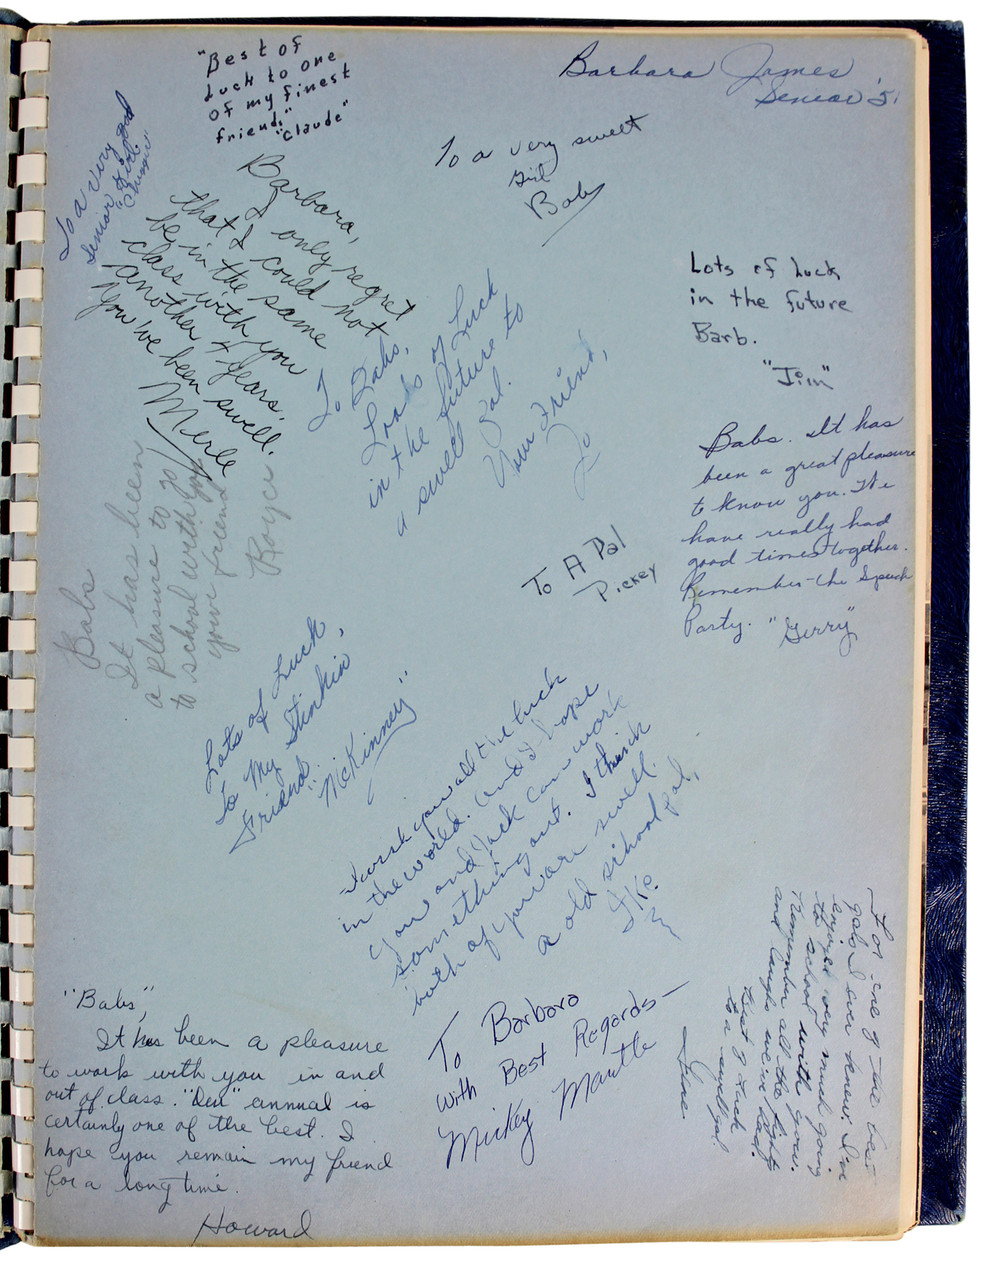 "Best of
Luck to one
of my finest
friends"
"Claude"
Barbara James
Senior '51
To a very sweet
girl
Babs
To a very good
Senior Girl
Barbara,
I only regret
that I could not
be in the same
class with you
another 4 years.
You've been swell.
Merle
To Babs,
Loads of Luck
in the future to
a swell gal.
Your Friend,
Jo
Lots of Luck
in the future
Barb.
"Jim"
Babs. It has
been a great pleasure
to know you. We
have really had
good times together.
Remember the Speech
Party. "Gerry"
Babs
It has been
a pleasure to go
to school with you
your friend
Royce
To A Pal
Pickey
Lots of Luck
To My Stinkin
Friend
"McKinney"
I wish you all the luck
in the world. And I hope
you and Jack can work
something out. I think
both of you are swell.
a old school pal,
Ike.
For one of the best
gals I ever knew. I've
enjoyed very much going
to school with you.
Remember all the
and laughs we've had.
Best of Luck
to a swell gal
"Babs",
It has been a pleasure
to work with you in and
out of class. "Our" annual is
certainly one of the best. I
hope you remain my friend
for a long time.
Howard
To Barbara
with Best Regards—
Mickey Mantle